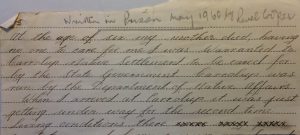 Written in Prison May 1966 by
At the age of six my mother died, having
no one to care for me I was Warranted to
Carrolup Native Settlement to be cared for
by the State Government. Carrolup was
run by the Department of Native Affairs.
When I arrived at Carrolup it was just
getting under way for the second time.
Living conditions there xxxxx xxxxx xxxx